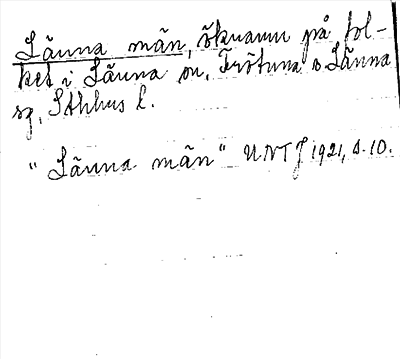 Länna män, öknamn på fol-
ket i Länna sn, Frötuna o Länna
sg, Sthlms l.
"Länna män" UNT J 1921, s. 10.